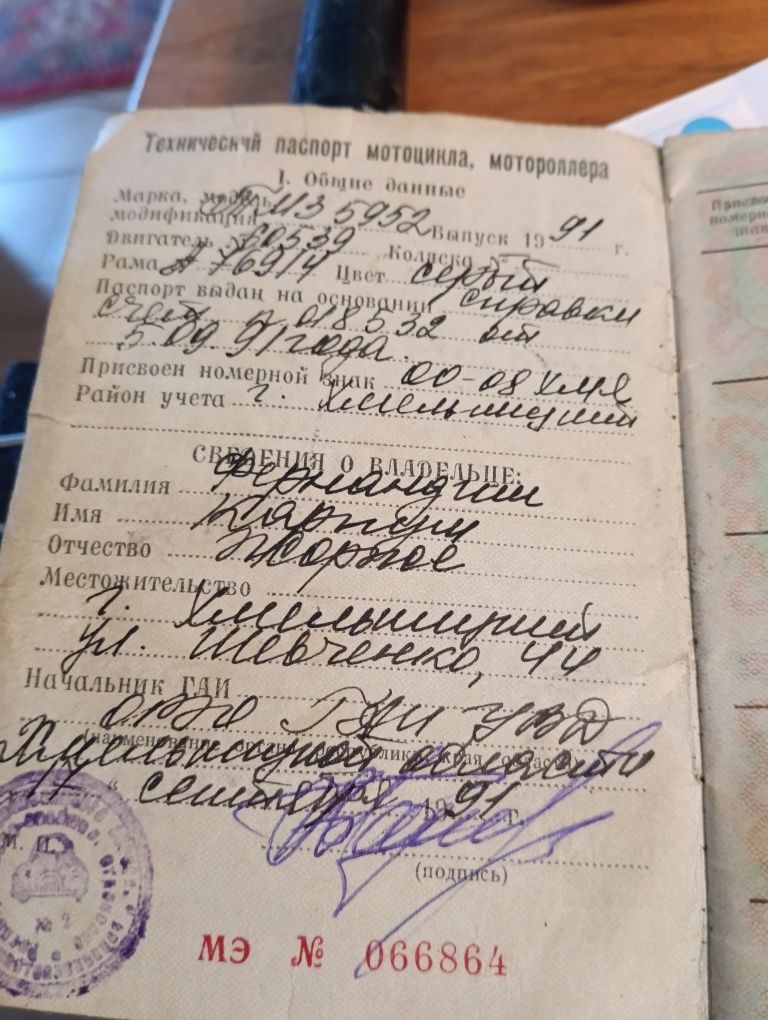 Технический паспорт мотоцикла, мотороллера
I. Общие данные
Марка, модель, ТМЗ 5952 Выпуск 19 91 г.
модификация
Двигатель 60539 Коляска
Рама А 76914 Цвет серый
Паспорт выдан на основании справки
счет n 018532 от
5.09.91 года
Присвоен номерной знак 00-08 ХМЯ
Район учета г. Хмельницкий
СВЕДЕНИЯ О ВЛАДЕЛЬЦЕ:
Фамилия Фернандиш
Имя
Отчество Жорже
Местожительство
г. Хмельницкий
ул. Шевченко, 44
Начальник ГАИ
ГАИ УВД
Хмельницкой области
17 " сентября 1991 г.
М. П.
(подпись)
№ 2
МЭ № 066864
Присвоен
номерной
знак